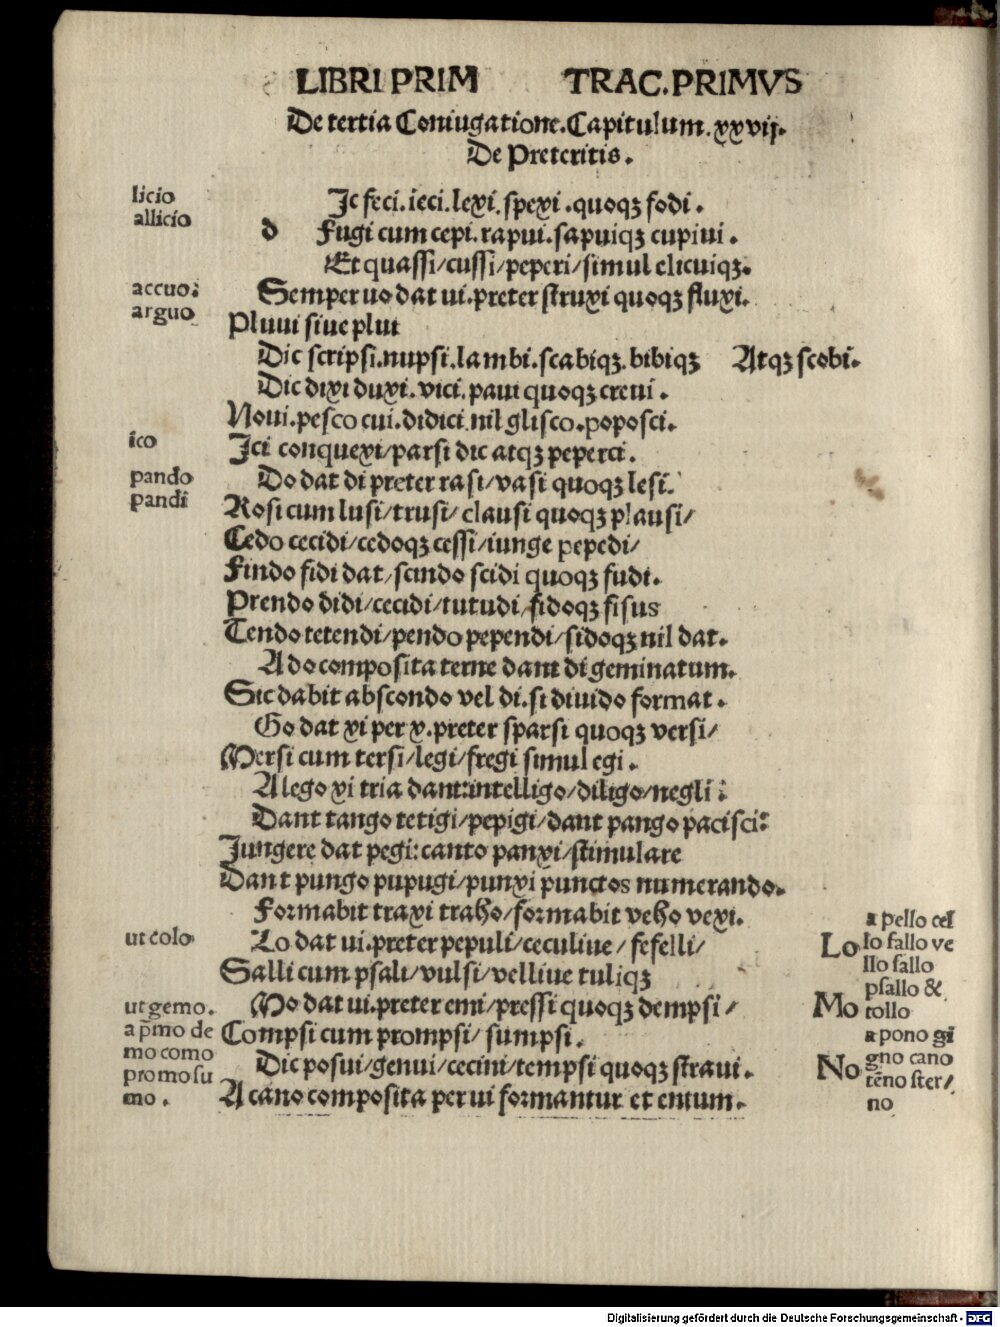 LIBRI PRIM TRAC.PRIMVS
De tertia Coniugatione.Capitulum.xxvij.
De Preteritis.
licio
allicio
Ic feci.ieci.lexi.spexi.quoqȝ fodi.
d Fugi cum cepi.rapui.sapuiqȝ cupiui.
Et quassi/cussi/peperi/simul elicuiqȝ.
accuo:
arguo
Semper uo dat ui.preter struxi quoqȝ fluxi.
Pluui siue plui
Dic scripsi.nupsi.lambi.scabiqȝ.bibiqȝ Atqȝ scobi.
Dic dixi duxi.vici.paui quoqȝ creui.
Noui.pesco cui.didici.nil glisco.poposci.
ico
Ici conquexi/parsi dic atqȝ peperci.
pando
pandi
Do dat di preter rasi/vasi quoqȝ lesi.
Rosi cum lusi/trusi/clausi quoqȝ plausi/
Cedo cecidi/cedoqȝ cessi/iunge pepedi/
Findo fidi dat/scindo scidi quoqȝ fudi.
Prendo didi/cecidi/tutudi/fidoqȝ fisus
Tendo tetendi/pendo pependi/sidoqȝ nil dat.
A do composita terne dant di geminatum.
Sic dabit abscondo vel di.si diuido format.
Go dat xi per x.preter sparsi quoqȝ versi/
Mersi cum tersi/legi/fregi simul egi.
A lego xi tria dant:intelligo/diligo/negli:
Dant tango tetigi/pepigi/dant pango pacisci:
Jungere dat pegi:canto panxi/stimulare
Dant pungo pupugi/punxi punctos numerando.
Formabit traxi traho/formabit veho vexi.
ut colo
Lo dat ui.preter pepuli/ceculiue/fefelli/
Salli cum psali/vulsi/velliue tuliqȝ
Lo a pello cel
lo fallo ve
llo sallo
psallo &
tollo
ut gemo.
a p̄mo de
mo como
promo su
mo.
Mo dat ui.preter emi/pressi quoqȝ dempsi/
Compsi cum prompsi/sumpsi.
Mo
Dic posui/genui/cecini/tempsi quoqȝ straui.
A cano composita per ui formantur et entum.
No a pono gi
gno cano
tēno ster/
no
Digitalisierung gefördert durch die Deutsche Forschungsgemeinschaft - DFG